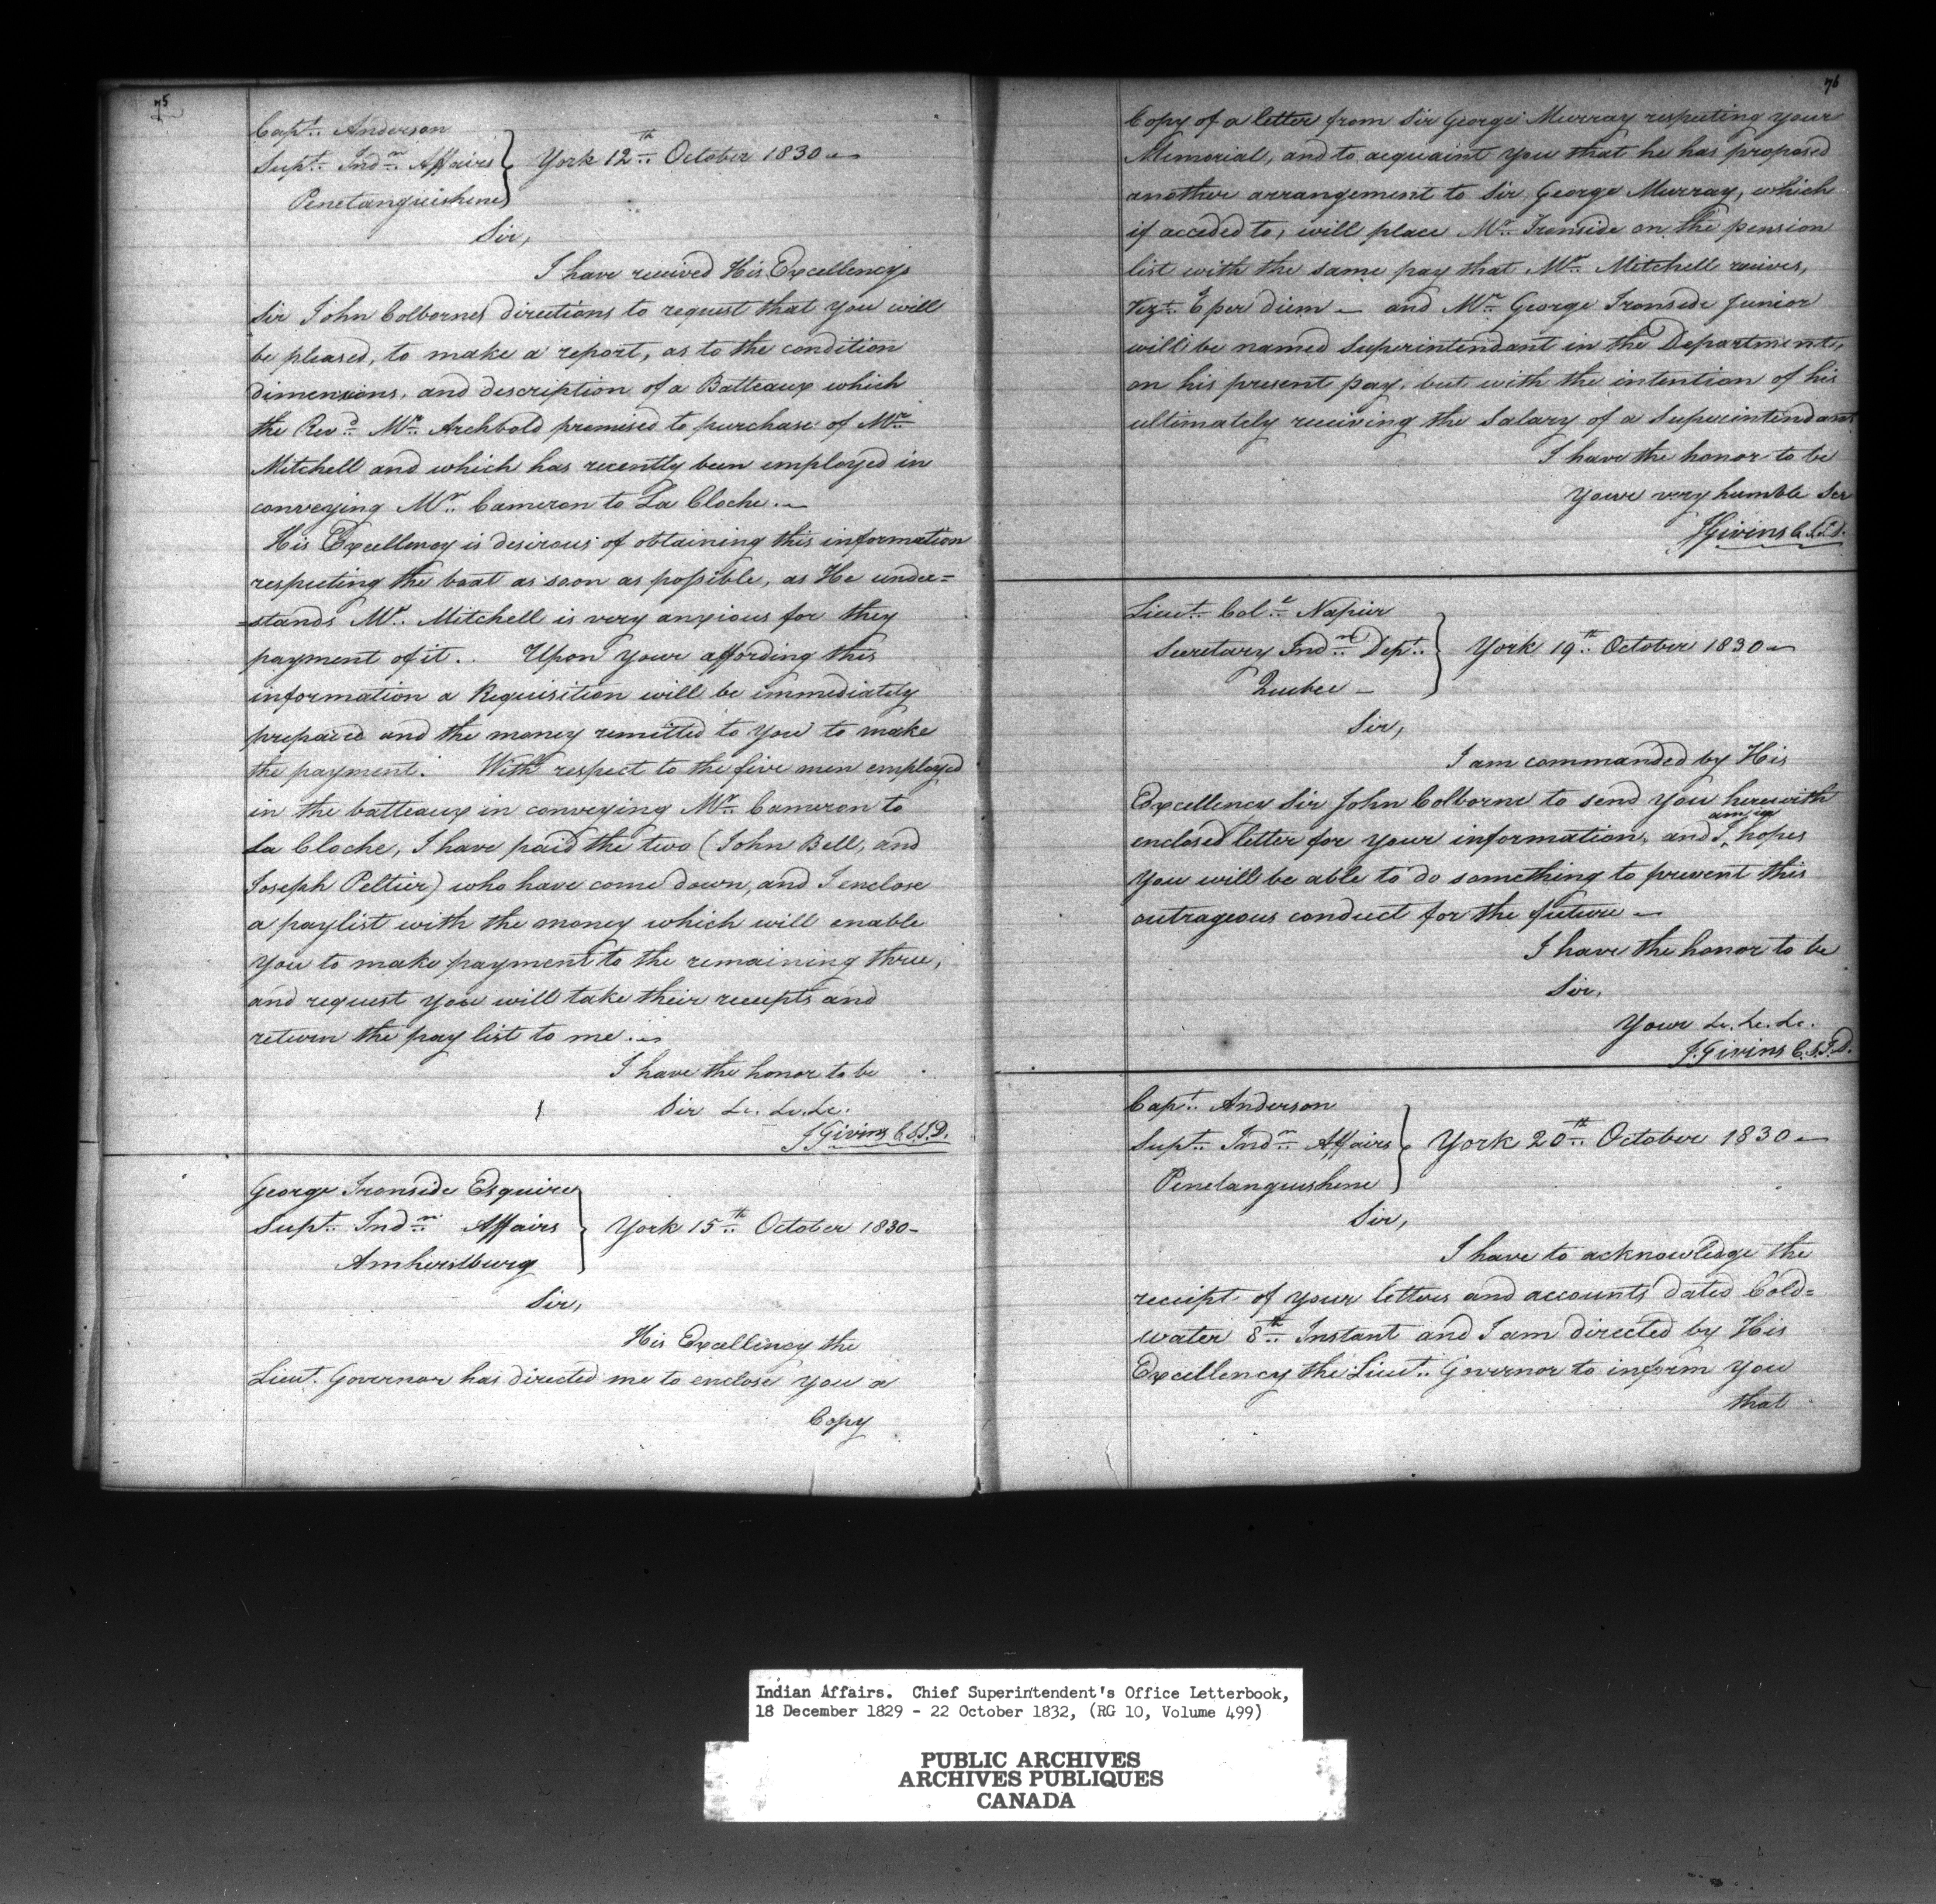 75
Capt. Anderson
Supt. Indn. Affairs } York 12th October 1830
Penetanguishene
Sir,
I have received His Excellencys
Sir John Colbornes directions to request that you will
be pleased, to make a report, as to the condition
dimensions, and description of a Batteaux which
the Revd. Mr. Archbold promised to purchase of Mr.
Mitchell and which has recently been employed in
conveying Mr. Cameron to La Cloche.
His Excellency is desirous of obtaining this information
respecting the boat as soon as possible, as He under=
=stands Mr. Mitchell is very anxious for they
payment of it. Upon your affording this
information a Requisition will be immediately
prepared and the money remitted to you to make
the payment. With respect to the five men employed
in the batteaux in conveying Mr. Cameron to
La Cloche, I have paid the two (John Bell, and
Joseph Peltier) who have come down, and I enclose
a paylist with the money which will enable
you to make payment to the remaining three,
and request you will take their receipts and
return the pay list to me.
I have the honor to be
Sir &c. &c. &c.
J Givins C.S.I.D.
George Ironside Esquire
Supt. Indn. Affairs } York 15th October 1830-
Amherstburg
Sir,
His Excellency the
Lieut. Governor has directed me to enclose you a
Copy
76
Copy of a letter from Sir George Murray respecting your
Memorial, and to acquaint you that he has proposed
another arrangement to Sir George Murray, which
if acceded to, will place Mr. Ironside on the pension
list with the same pay that Mr. Mitchell receives,
Vizt. per diem - and Mr. George Ironside Junior
will be named Superintendant in the Department,
on his present pay, but with the intention of his
ultimately receiving the Salary of a Superintendant
I have the honor to be
Your very humble Ser
J Givins C.S.I.D.
Lieut. Coll. Napier
Secretary Indn. Dept. } York 19th October 1830
Quebec -
Sir,
I am commanded by His
Excellency Sir John Colborne to send you herewith
am in
enclosed letter for your information, and I hopes
you will be able to do something to prevent this
outrageous conduct for the future -
I have the honor to be
Sir,
Your &c. &c. &c.
J. Givins C.S.I.D.
Capt. Anderson
Supt. Indn. Affairs } York 20th October 1830
Penetanguishene
Sir,
I have to acknowledge the
receipt of your letters and accounts dated Cold=
water 8th Instant and I am directed by His
Excellency the Lieut. Governor to inform you
that
Indian Affairs. Chief Superintendent's Office Letterbook,
18 December 1829 - 22 October 1832, (RG 10, Volume 499)
PUBLIC ARCHIVES
ARCHIVES PUBLIQUES
CANADA